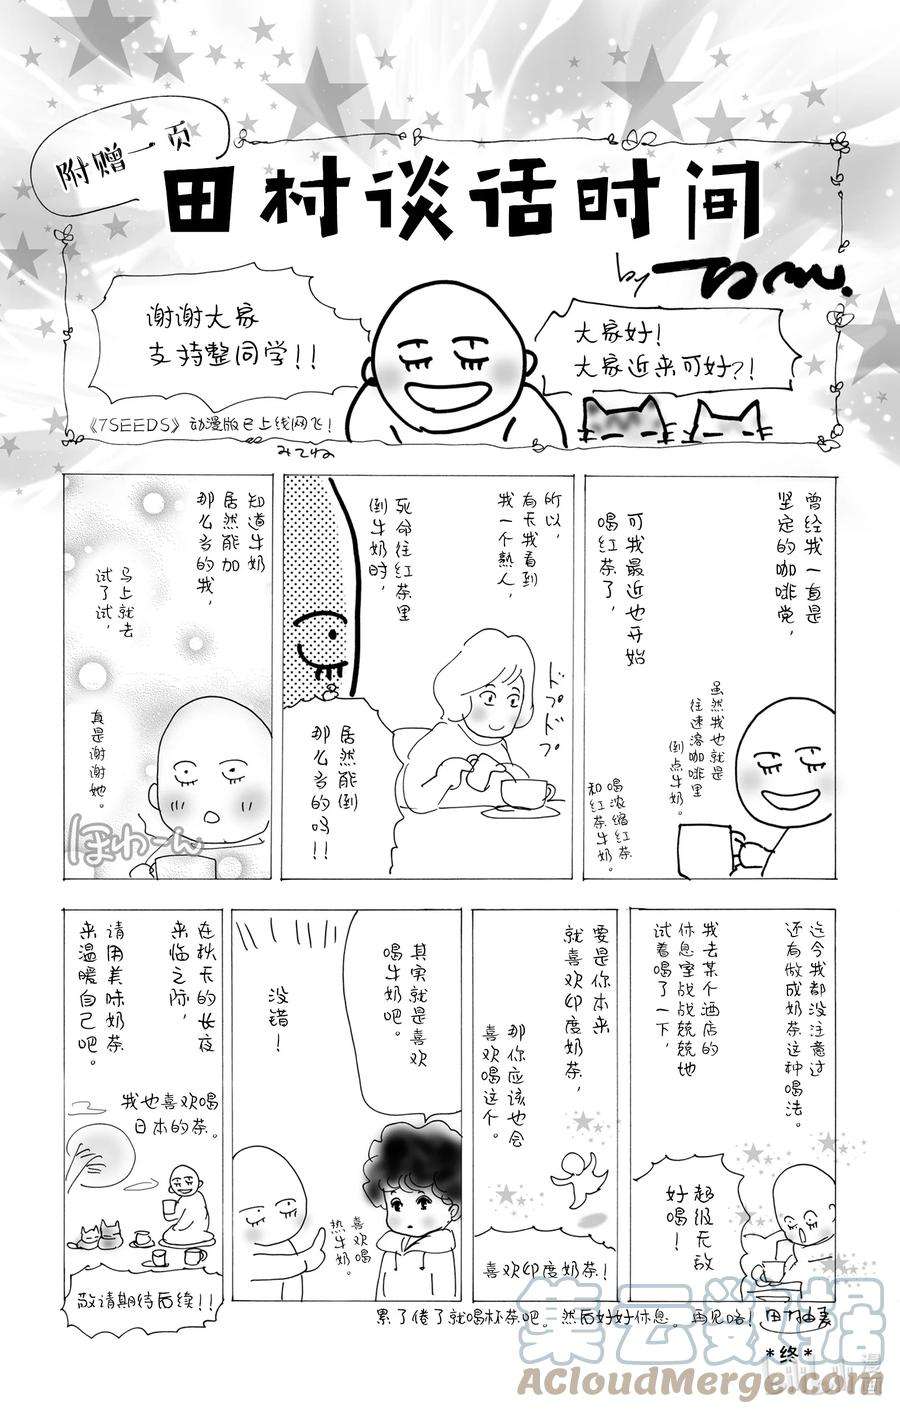 附赠一页
田村谈话时间
by
大家好！
大家近来可好？！
谢谢大家
支持整同学！！
《7SEEDS》动漫版已上线网飞！
みてね
曾经我一直是
坚定的咖啡党，
可我最近也开始
喝红茶了，
虽然我也就是
往速溶咖啡里
倒点牛奶。
喝浓缩红茶
和红茶牛奶。
所以，
有天我看到
我一个熟人，
死命往红茶里
倒牛奶时，
ドプドプ
居然能倒
那么多的吗！！
知道牛奶
居然能加
那么多的我，
马上就去
试了试，
真是谢谢她。
ほわーん
迄今我都没注意过
还有做成奶茶这种喝法。
我去某个酒店的
休息室战战兢兢地
试着喝了一下，
超级无敌
好喝！
要是你本来
就喜欢印度奶茶，
那你应该也会
喜欢喝这个。
喜欢印度奶茶！
其实就是喜欢
喝牛奶吧。
没错！
喜欢喝
热牛奶。
在秋天的长夜
来临之际，
请用美味奶茶
来温暖自己吧。
我也喜欢喝
日本的茶。
敬请期待后续！！
累了倦了就喝杯茶吧。然后好好休息。再见咯！
*终*
集云数据
ACloudMerge.com
漫画